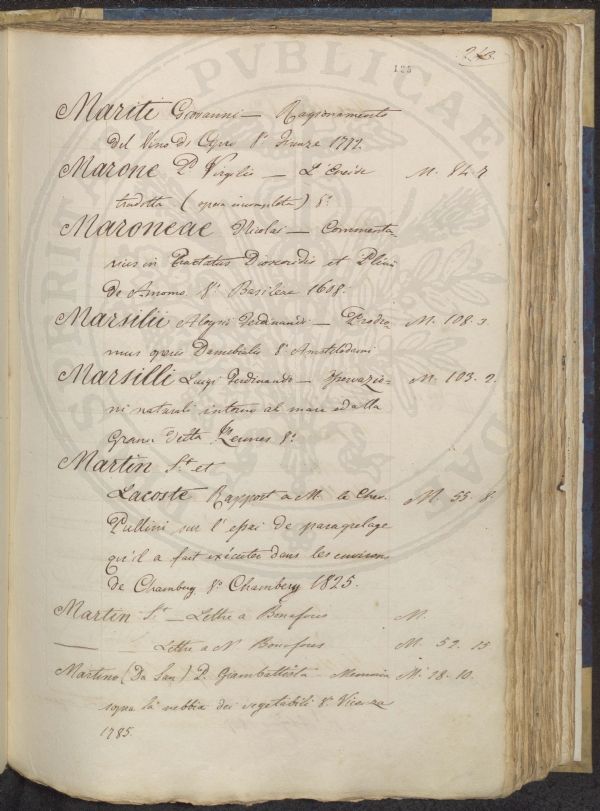 243.
125
Mariti Giovanni — Ragionamento
del Vino di Cipro 8° Firenze 1772.
Marone P. Virgilio — L'Eneide M. 84. 7
tradotta (opera incompleta) 8°.
Maroneae Nicolai — Commenta-
rius in Tractatus Dioscoridis et Plinii
de Amomo 8° Basileae 1608.
Marsilii Aloysii Ferdinandi — Prodro M. 108. 3
mus operis Danubialis 8° Amstelodami
Marsilli Luigi Ferdinando — Osservazio- M. 103. 2.
ni naturali intorno al mare ed alla
Grana detta Kermes 8°.
Martin St. et
Lacoste Rapport a M. le Chev. M. 55. 8.
Pullini sur l'essai de paragrelage
qu'il a fait exécuter dans les environs
de Chambery 8° Chambery 1825.
Martin St. — Lettre a Bonafous M.
— Lettre a N. Bonafous M. 52. 15
Martino (Da San) P. Giambattista - Memoria M. 18. 10.
sopra la nebbia dei vegetabili 8° Vicenza
1785.
PVBLICAE